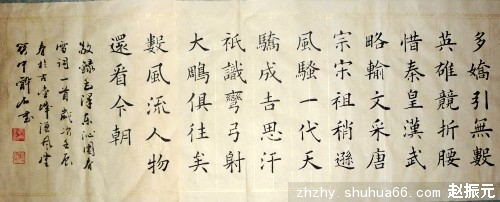 多嬌引無數
英雄競折腰
惜秦皇漢武
略輸文采唐
宗宋祖稍遜
風騷一代天
驕成吉思汗
祇識彎弓射
大鵰俱往矣
數風流人物
還看今朝
敬錄毛澤東沁園春
雪詞一首歲次
zhzhy.shuhua66.com 赵振元